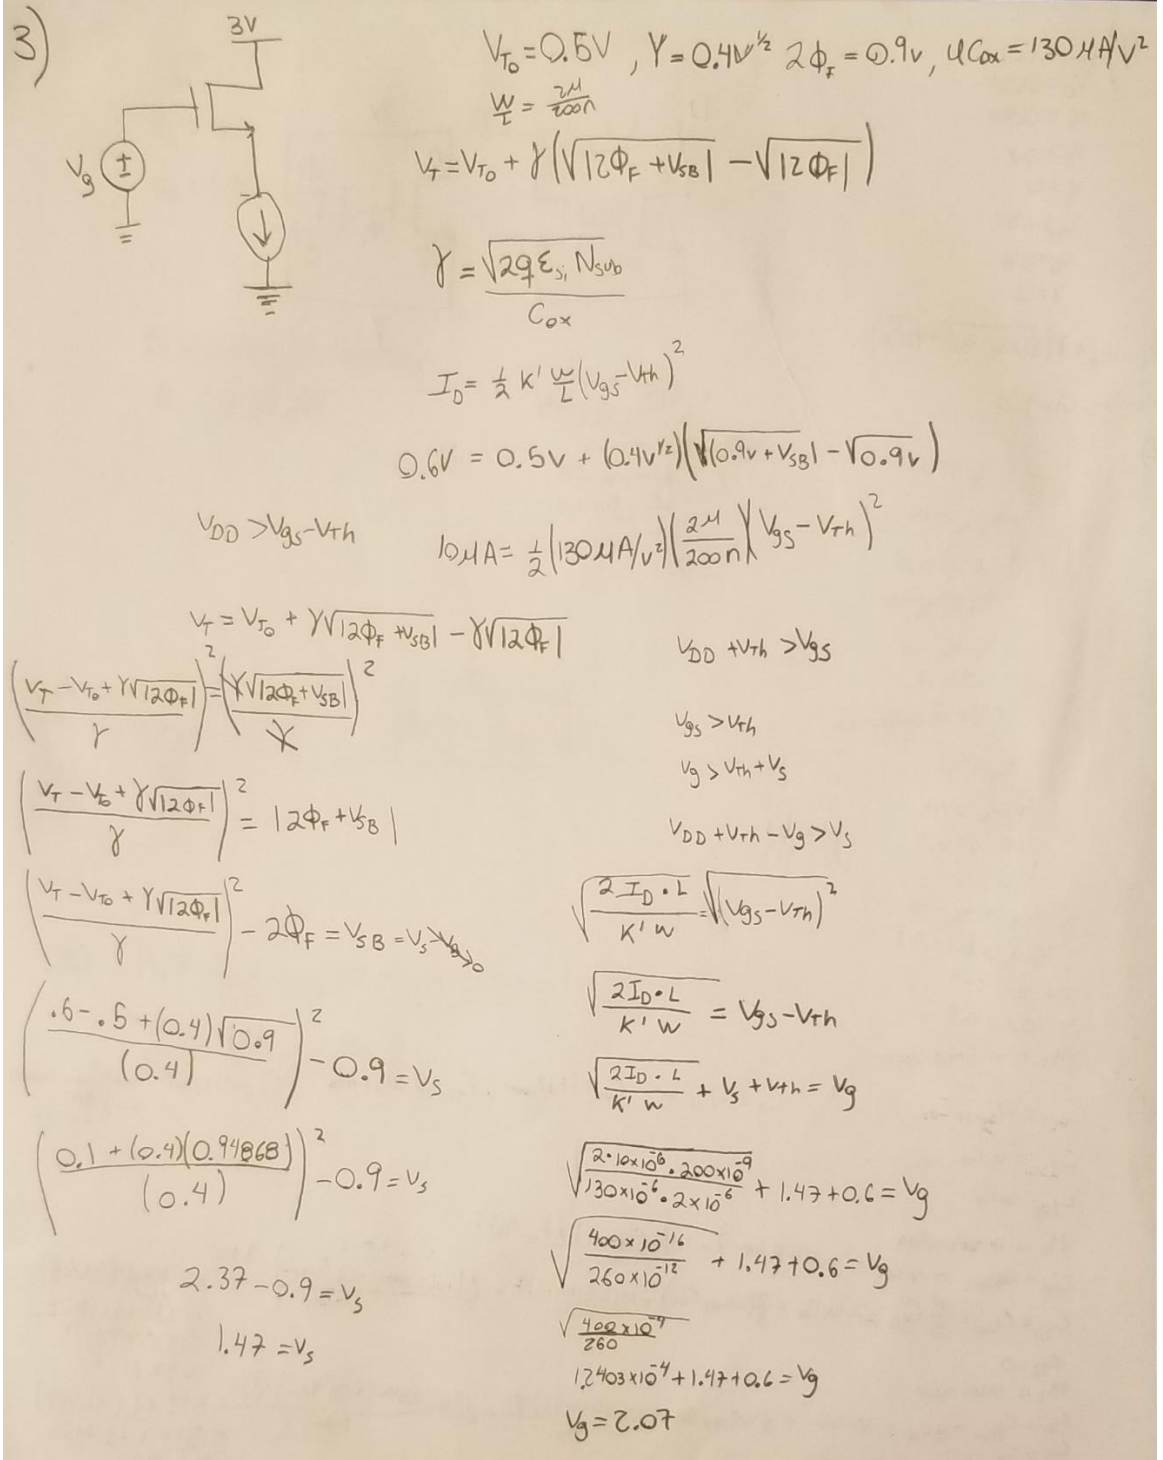 3)
3V
V_g
V_T0 = 0.5V , γ = 0.4V^1/2 2Φ_F = 0.9V, uCox = 130 uA/V²
W/L = 2u/200n
V_T = V_T0 + γ(√|2Φ_F + V_SB| − √|2Φ_F|)
γ = √(2qε_si N_sub) / C_ox
I_D = 1/2 K' W/L (V_gs − V_th)²
0.6V = 0.5V + (0.4V^1/2)(√|0.9V + V_SB| − √0.9V)
V_DD > V_gs − V_Th
10uA = 1/2 (130uA/V²)(2u/200n)(V_gs − V_Th)²
V_T = V_T0 + γ√|2Φ_F + V_SB| − γ√|2Φ_F|
((V_T − V_T0 + γ√|2Φ_F|)/γ)² = (γ√|2Φ_F + V_SB|/γ)²
((V_T − V_T0 + γ√|2Φ_F|)/γ)² = |2Φ_F + V_SB|
((V_T − V_T0 + γ√|2Φ_F|)/γ)² − 2Φ_F = V_SB = V_S − V_B→0
((.6 − .5 + (0.4)√0.9)/(0.4))² − 0.9 = V_S
((0.1 + (0.4)(0.94868))/(0.4))² − 0.9 = V_S
2.37 − 0.9 = V_S
1.47 = V_S
V_DD + V_Th > V_gs
V_gs > V_Th
V_g > V_Th + V_S
V_DD + V_Th − V_g > V_S
√(2I_D·L/K'W) = √(V_gs − V_Th)²
√(2I_D·L/K'W) = V_gs − V_Th
√(2I_D·L/K'W) + V_S + V_th = V_g
√(2·10×10^-6·200×10^-9/130×10^-6·2×10^-6) + 1.47 + 0.6 = V_g
√(400×10^-16/260×10^-12) + 1.47 + 0.6 = V_g
√(400×10^-4/260)
1.2403×10^-4 + 1.47 + 0.6 = V_g
V_g = 2.07